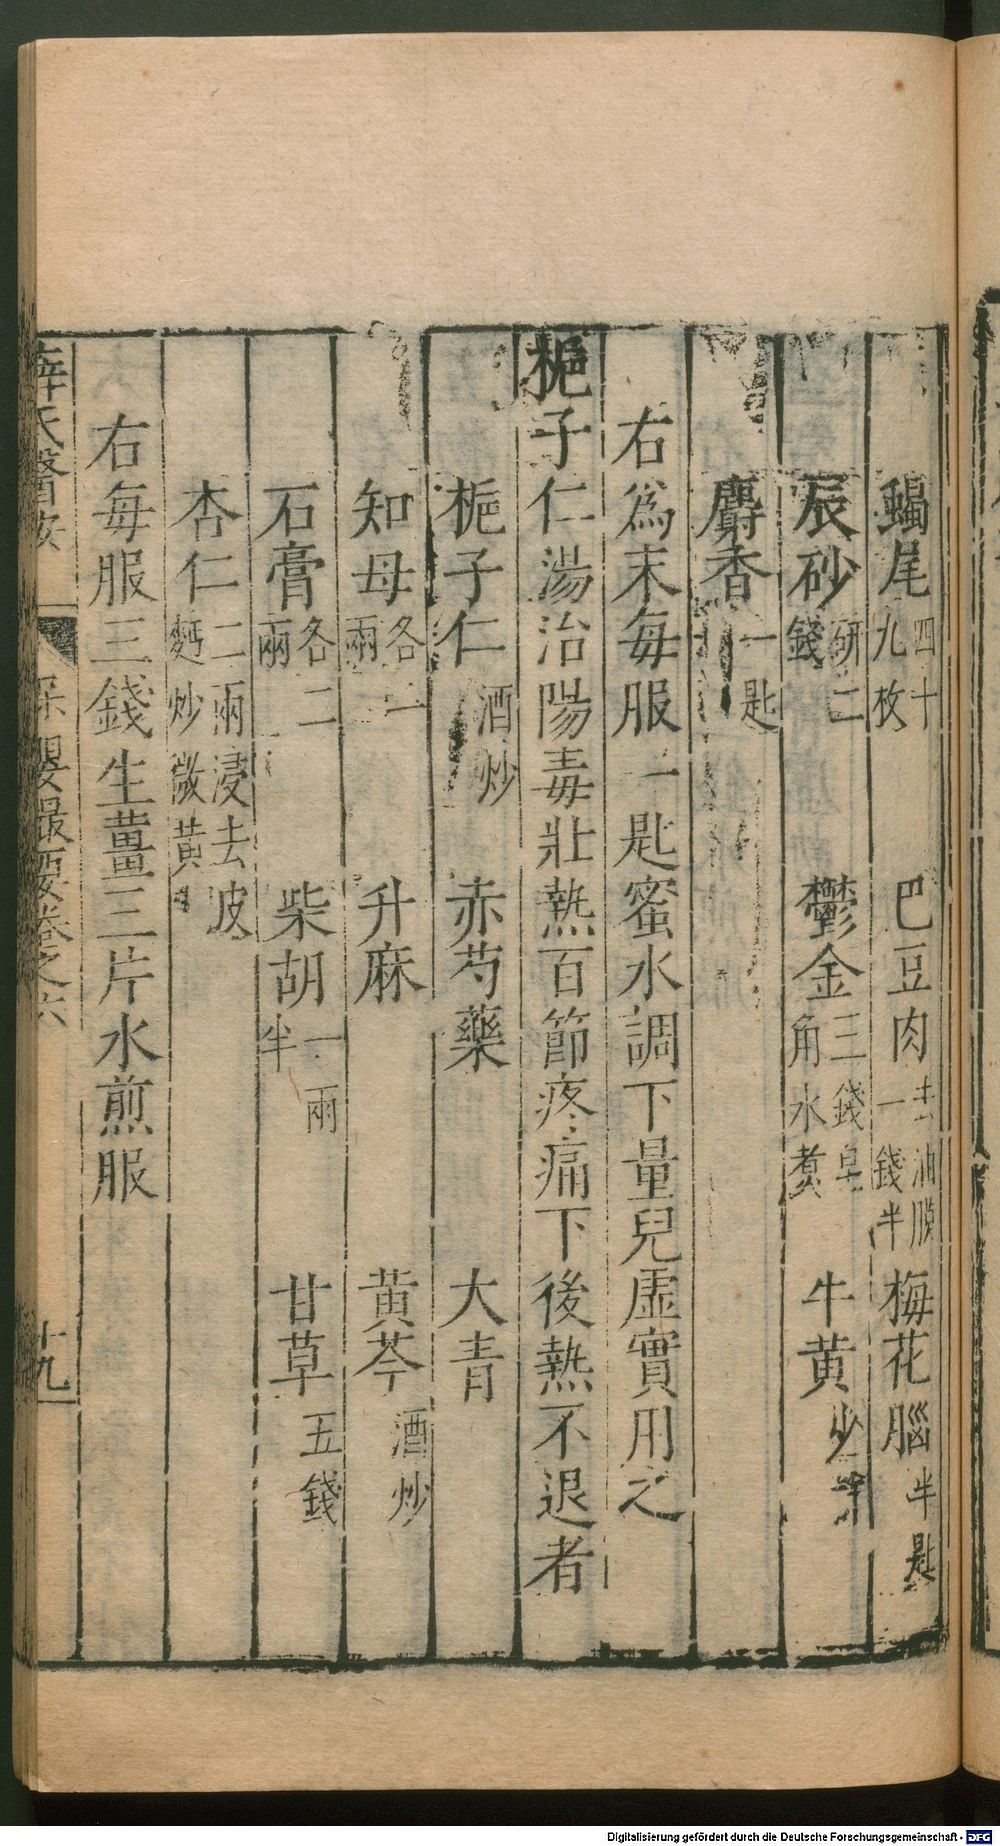 蝎尾四十九枚 巴豆肉去油膜一錢半 梅花腦半匙
辰砂研二錢 鬱金三錢皁角水煮 牛黄少許
麝香一匙
右為末每服一匙蜜水調下量兒虚實用之
梔子仁湯治陽毒壯熱百節疼痛下後熱不退者
梔子仁酒炒 赤芍藥 大青
知母各一兩 升麻 黄芩酒炒
石膏各二兩 柴胡一兩半 甘草五錢
杏仁二兩浸去皮麪炒微黄
右每服三錢生薑三片水煎服
薛氏醫按 保嬰撮要卷之六 十九
Digitalisierung gefördert durch die Deutsche Forschungsgemeinschaft - DFG